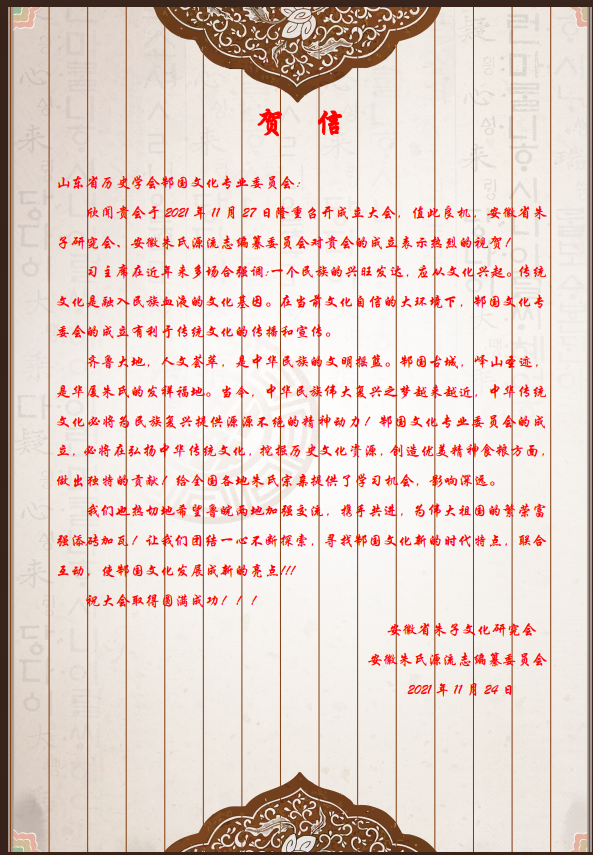 贺 信
山东省历史学会邾国文化专业委员会：
欣闻贵会于 2021 年 11 月 27 日隆重召开成立大会，值此良机，安徽省朱
子研究会、安徽朱氏源流志编纂委员会对贵会的成立表示热烈的祝贺！
习主席在近年来多场合强调:一个民族的兴旺发达，应从文化兴起。传统
文化是融入民族血液的文化基因。在当前文化自信的大环境下，邾国文化专
委会的成立有利于传统文化的传播和宣传。
齐鲁大地，人文荟萃，是中华民族的文明摇篮。邾国古城，峄山圣迹，
是华厦朱氏的发祥福地。当今，中华民族伟大复兴之梦越来越近，中华传统
文化必将为民族复兴提供源源不绝的精神动力！邾国文化专业委员会的成
立，必将在弘扬中华传统文化，挖掘历史文化资源，创造优美精神食粮方面，
做出独特的贡献！给全国各地朱氏宗亲提供了学习机会，影响深远。
我们也热切地希望鲁皖两地加强交流，携手共进，为伟大祖国的繁荣富
强添砖加瓦！让我们团结一心不断探索，寻找邾国文化新的时代特点，联合
互动，使邾国文化发展成新的亮点!!!
祝大会取得圆满成功！！！
安徽省朱子文化研究会
安徽朱氏源流志编纂委员会
2021 年 11 月 24 日